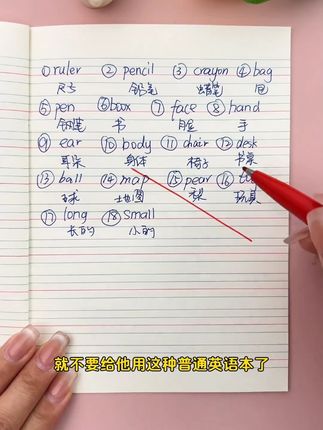 ①ruler ②pencil ③crayon ④bag
尺子 铅笔 蜡笔 包
⑤pen ⑥book ⑦face ⑧hand
钢笔 书 脸 手
⑨ear ⑩body ⑪chair ⑫desk
耳朵 身体 椅子 书桌
⑬ball ⑭map ⑮pear ⑯
球 地图 梨
⑰long ⑱small
长的 小的
就不要给他用这种普通英语本了